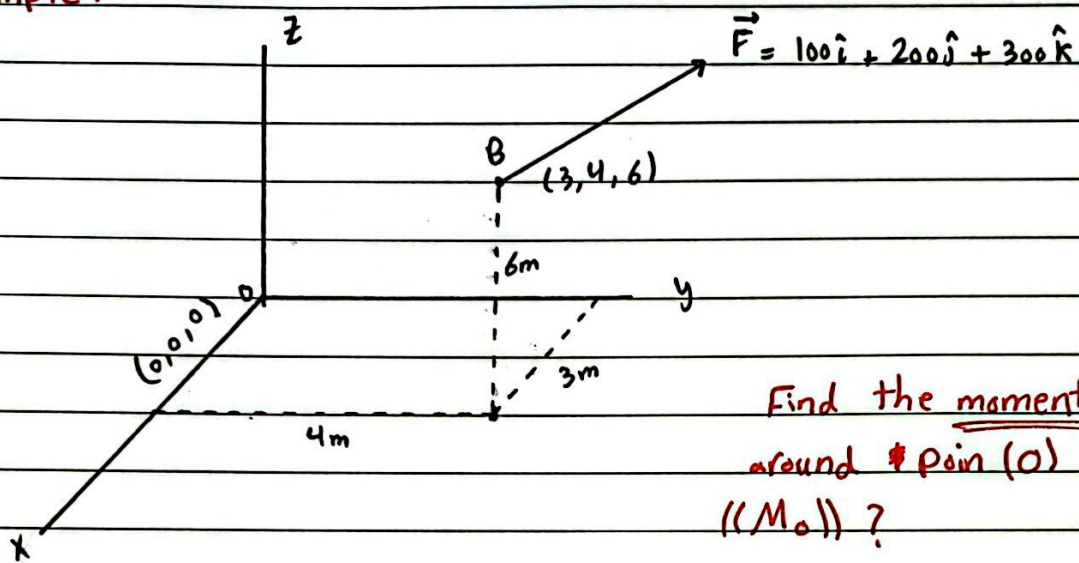 z
F⃗ = 100î + 200ĵ + 300k̂
B
(3,4,6)
6m
O
y
(0,0,0)
3m
4m
Find the moment
around Poin (O)
((Mo)) ?
x